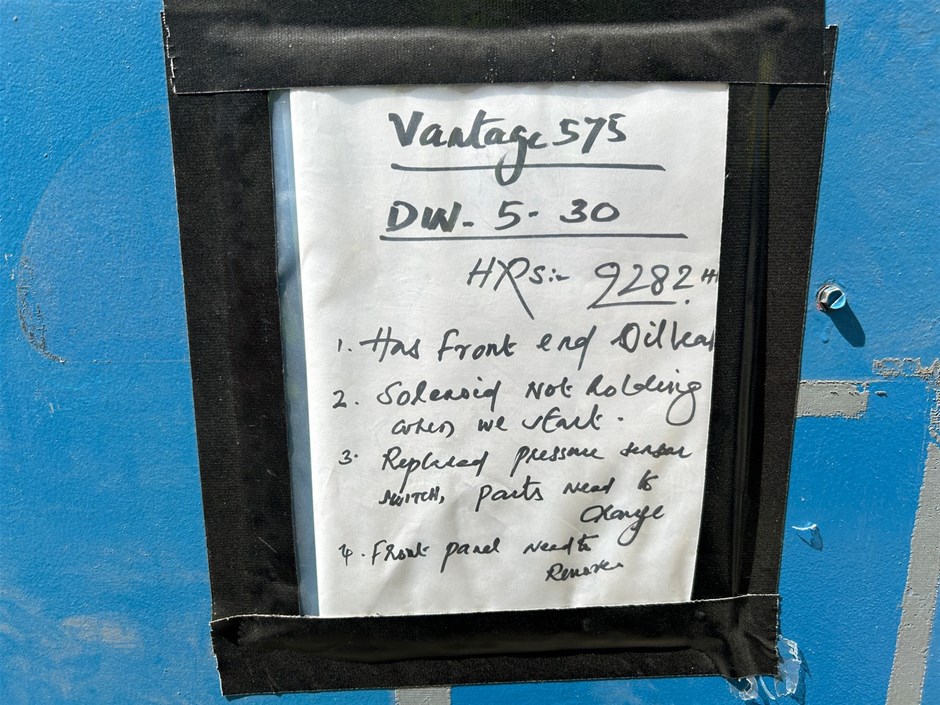 Vantage 575
DW- 5- 30
HRS:- 9282 H
1. Has Front end Oil leak
2. Solenoid Not holding
when we start.
3. Replaced pressure sensor
SWITCH, parts need to
Change
4. Front panel need to
Remove